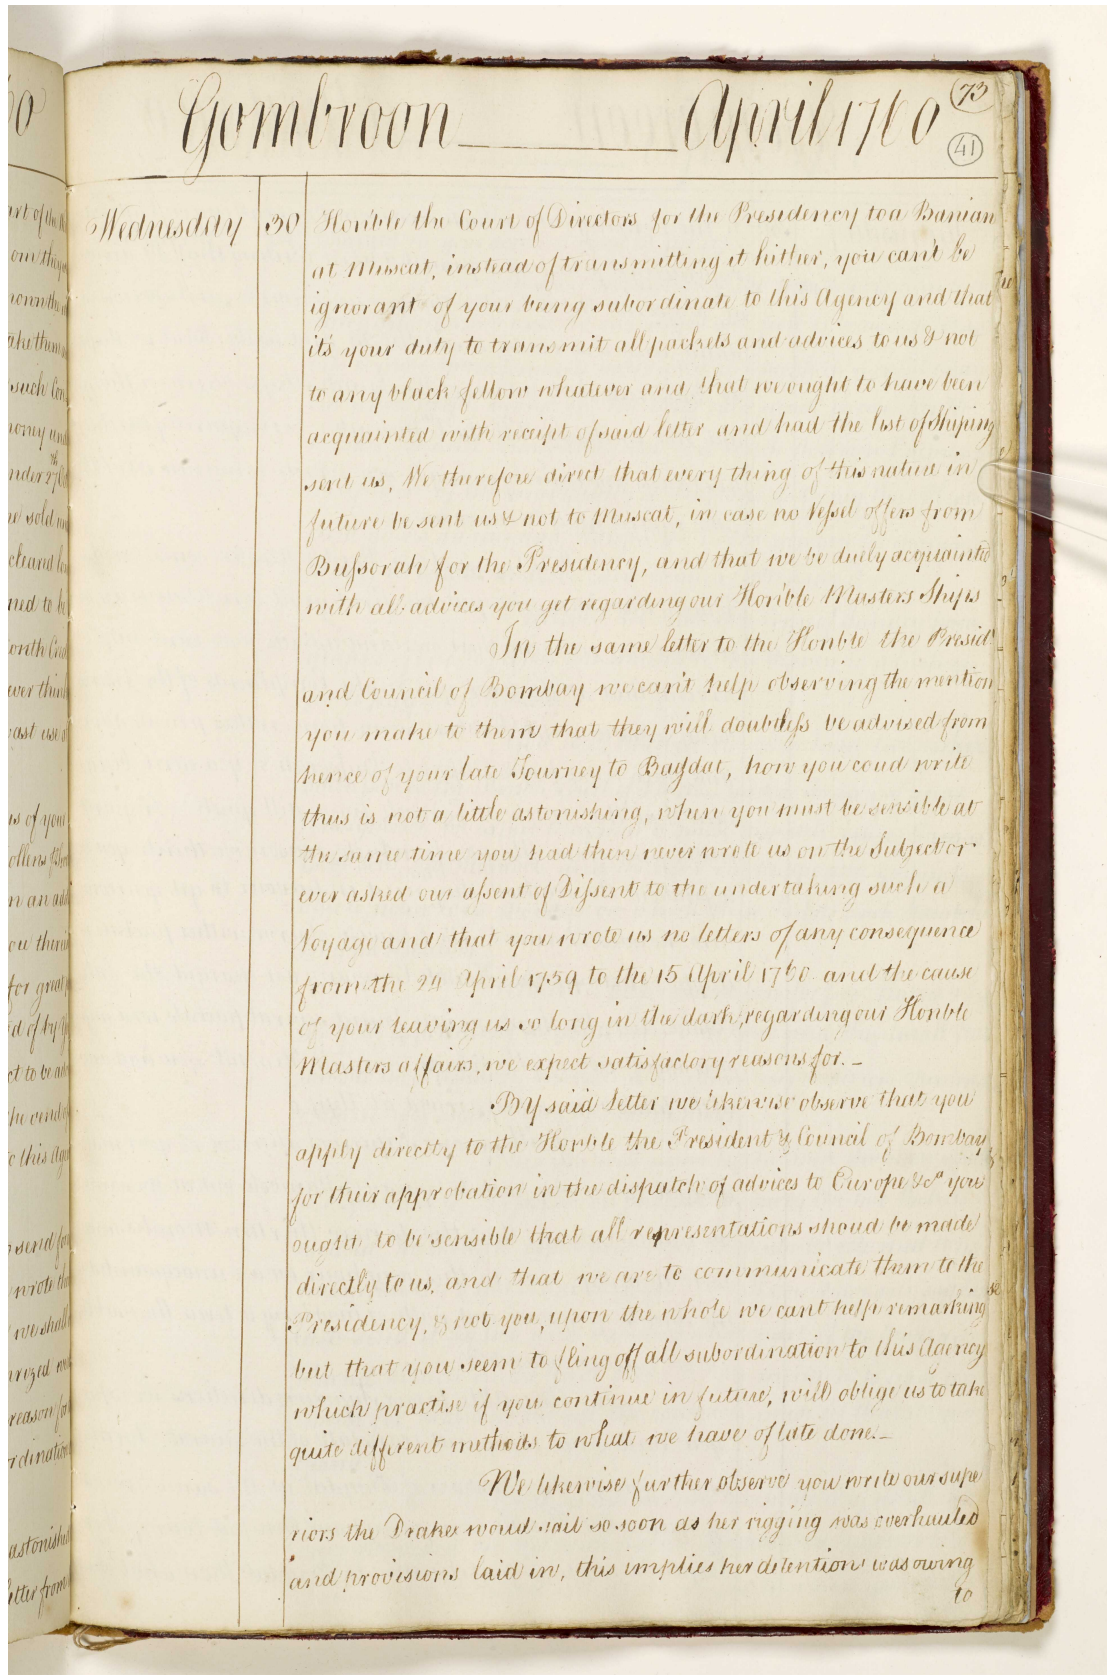 Gombroon April 1760
73
41
Wednesday 30 Honble the Court of Directors for the Presidency to a Banian
at Muscat, instead of transmitting it hither, you can't be
ignorant of your being subordinate to this Agency and that
its your duty to transmit all packets and advices to us & not
to any black fellow whatever and that we ought to have been
acquainted with receipt of said letter and had the list of Shiping
sent us, We therefore direct that every thing of this nature in
future be sent us & not to Muscat, in case no Vessel offers from
Bussorah for the Presidency, and that we be duely acquainted
with all advices you get regarding our Honble Masters Ships
In the same letter to the Honble the Presidt
and Council of Bombay we can't help observing the mention
you make to them that they will doubtless be advised from
hence of your late Journey to Bagdat, how you coud write
thus is not a little astonishing, when you must be sensible at
the same time you had then never wrote us on the Subject or
ever asked our assent of Dissent to the undertaking such a
Voyage and that you wrote us no letters of any consequence
from the 24 April 1759 to the 15 April 1760 and the cause
of your leaving us so long in the dark, regarding our Honble
Masters affairs, we expect satisfactory reasons for. –
By said letter we likewise observe that you
apply directly to the Honble the President & Council of Bombay
for their approbation in the dispatch of advices to Europe &ca you
ought to be sensible that all representations shoud be made
directly to us, and that we are to communicate them to the
Presidency, & not you, upon the whole we cant help remarking
but that you seem to fling off all subordination to this Agency
which practise if you continue in future, will oblige us to take
quite different methods to what we have of late done. –
We likewise further observe you write our supe
riors the Drake woud sail so soon as her rigging was overhauled
and provisions laid in, this implies her detention was owing
to